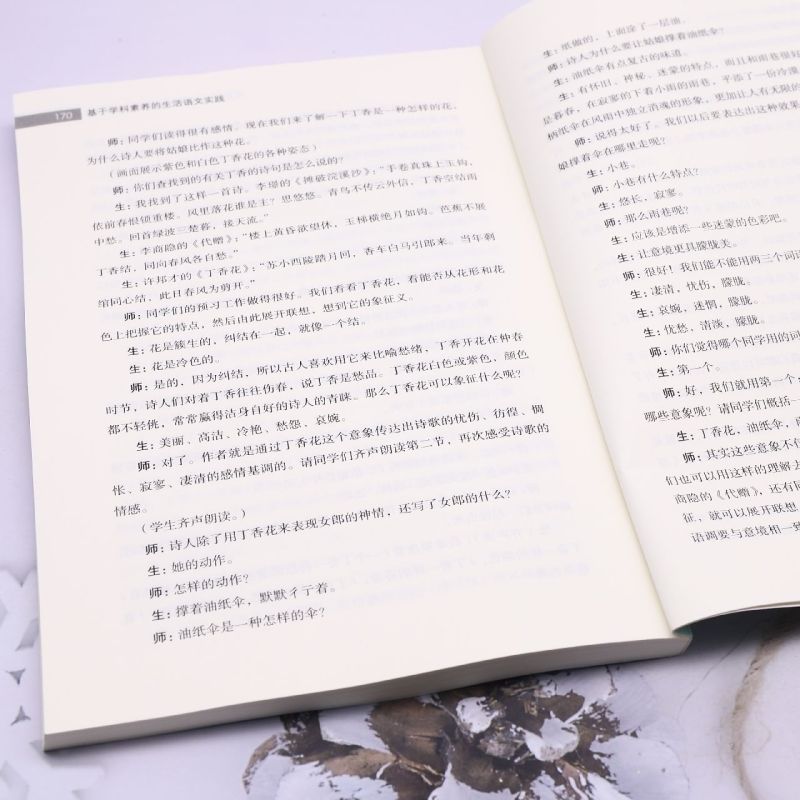 170 基于学科素养的生活语文实践
师：同学们读得很有感情。现在我们来了解一下丁香是一种怎样的花，
为什么诗人要将姑娘比作这种花。
（画面展示紫色和白色丁香花的各种姿态）
师：你们查找到的有关丁香的诗句是怎么说的？
生：我找到了这样一首诗。李璟的《摊破浣溪沙》：“手卷真珠上玉钩，
依前春恨锁重楼。风里落花谁是主？思悠悠。青鸟不传云外信，丁香空结雨
中愁。回首绿波三楚暮，接天流。”
生：李商隐的《代赠》：“楼上黄昏欲望休，玉梯横绝月如钩。芭蕉不展
丁香结，同向春风各自愁。”
生：许邦才的《丁香花》：“苏小西陵踏月回，香车白马引郎来。当年剩
绾同心结，此日春风为剪开。”
师：同学们的预习工作做得很好。我们看看丁香花，看能否从花形和花
色上把握它的特点，然后由此展开联想，想到它的象征义。
生：花是簇生的，纠结在一起，就像一个结。
生：花是冷色的。
师：是的，因为纠结，所以古人喜欢用它来比喻愁绪，丁香开花在仲春
时节，诗人们对着丁香往往伤春，说丁香是愁品。丁香花白色或紫色，颜色
都不轻佻，常常赢得洁身自好的诗人的青睐。那么丁香花可以象征什么呢？
生：美丽、高洁、冷艳、愁怨、哀婉。
师：对了。作者就是通过丁香花这个意象传达出诗歌的忧伤、彷徨、惆
怅、寂寥、凄清的感情基调的。请同学们齐声朗读第二节，再次感受诗歌的
情感。
（学生齐声朗读。）
师：诗人除了用丁香花来表现女郎的神情，还写了女郎的什么？
生：她的动作。
师：怎样的动作？
生：撑着油纸伞，默默彳亍着。
师：油纸伞是一种怎样的伞？
生：纸做的，上面涂了一层油。
师：诗人为什么要让姑娘撑着油纸伞？
生：油纸伞有点复古的味道。
生：有怀旧、神秘、迷蒙的特点，而且和雨巷很
是暮春，在寂寥的下着小雨的雨巷，平添了一份冷漠
柄纸伞在风雨中独立消魂的形象，更加让人有无限的
师：说得太好了。我们以后要表达出这种效果
娘撑着伞在哪里走呢？
生：小巷。
师：小巷有什么特点？
生：悠长，寂寥。
师：那么雨巷呢？
生：应该是增添一些迷蒙的色彩吧。
生：让意境更具朦胧美。
师：很好！我们能不能用两三个词
生：凄清，忧伤，朦胧。
生：哀婉，迷惘，朦胧。
生：忧愁，清淡，朦胧。
师：你们觉得哪个同学用的词
生：第一个。
师：好，我们就用第一个
哪些意象呢？请同学们概括一
生：丁香花，油纸伞，
师：其实这些意象不
们也可以用这样的理解去
商隐的《代赠》，还有同
征，就可以展开联想
语调要与意境相一致